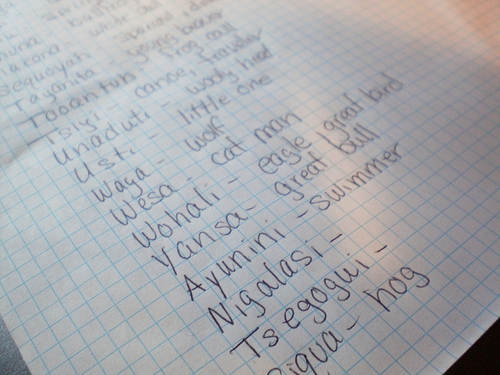 sequoyah -
Tayanita - young beaver
Tooantuh - frog
Tsiyi - canoe, traveler
Unaduti - wooly head
Usti - little one
Waya - wolf
Wesa - cat man
Wohali - eagle great bird
Yansa - great bull
Ayunini - swimmer
Nigalasi -
Tsegogui -
Siqua - hog